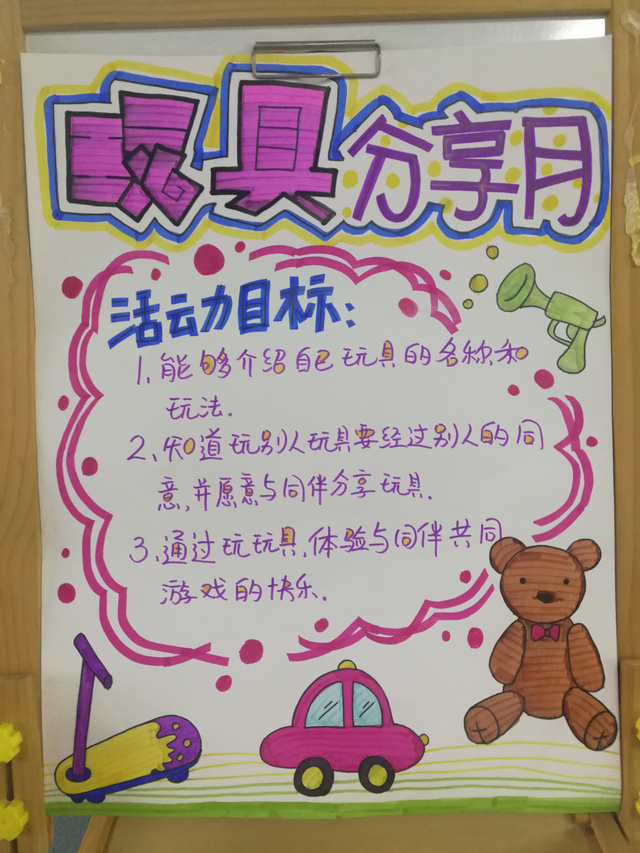 玩具分享月
活动力目标：
1、能够介绍自己玩具的名称和
玩法.
2、知道玩别人玩具要经过别人的同
意,并愿意与同伴分享玩具.
3、通过玩玩具,体验与同伴共同
游戏的快乐.